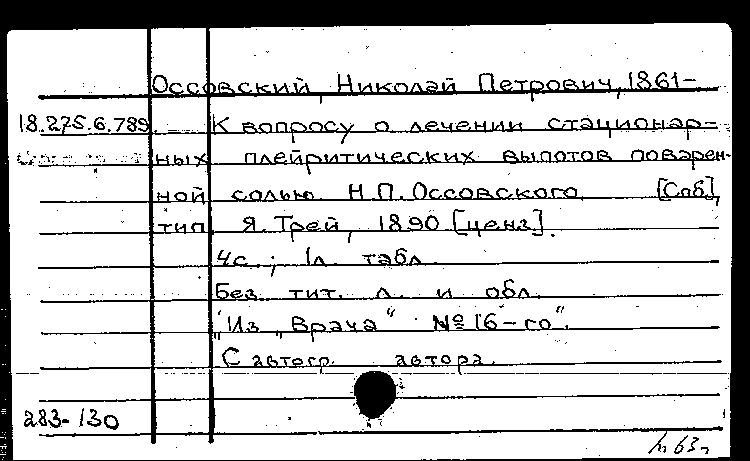 Оссовский, Николай Петрович, 1861-
18.275.6.789 К вопросу о лечении стационар-
ных плейритических выпотов поварен-
ной солью. Н.П. Оссовского. [Спб],
тип. Я. Трей, 1890 [ценз].
4с.; 1л. табл.
Без тит. л. и обл.
"Из "Врача" № 16-го".
С автогр. автора.
283-130